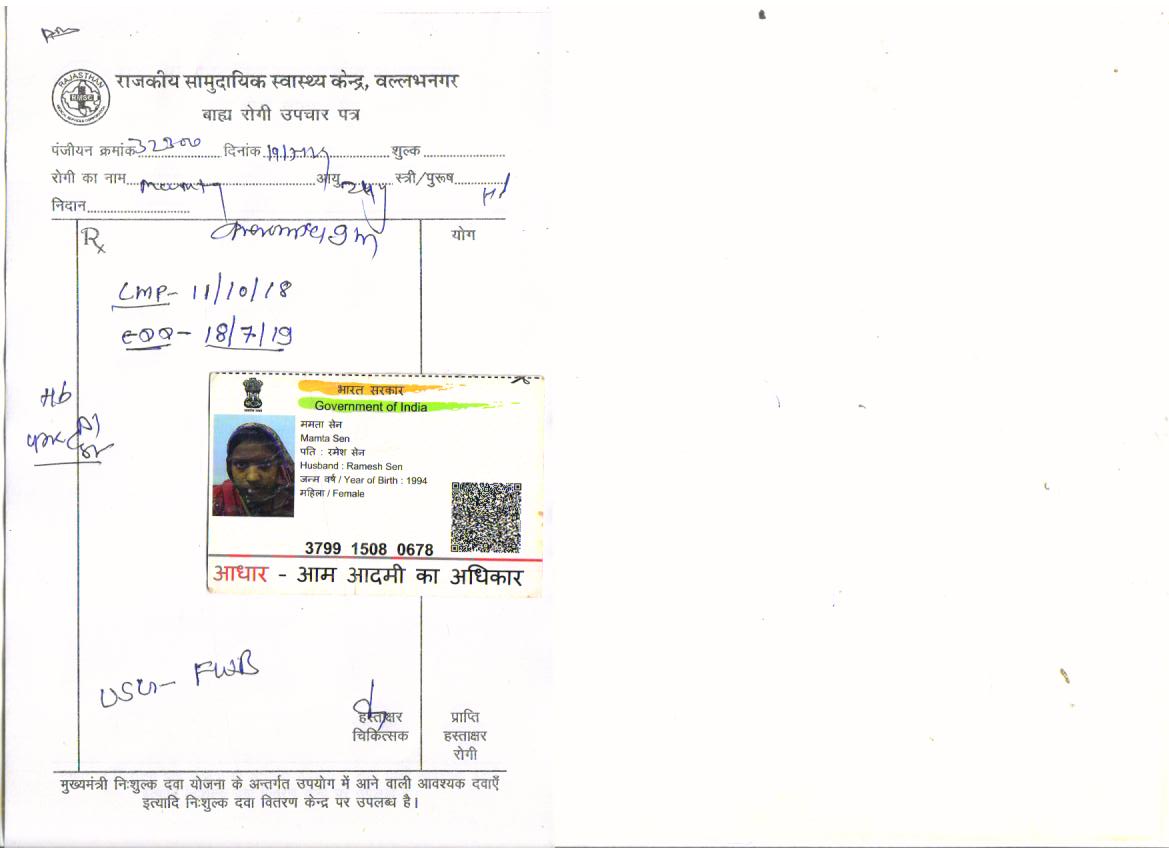 RAJASTHAN
RMSC
राजकीय सामुदायिक स्वास्थ्य केन्द्र, वल्लभनगर
बाह्य रोगी उपचार पत्र
पंजीयन क्रमांक दिनांक शुल्क
रोगी का नाम आयु स्त्री/पुरूष
निदान
Rx योग
LMP- 11/10/18
EDD- 18/7/19
Hb
भारत सरकार
Government of India
ममता सेन
Mamta Sen
पति : रमेश सेन
Husband : Ramesh Sen
जन्म वर्ष / Year of Birth : 1994
महिला / Female
3799 1508 0678
आधार - आम आदमी का अधिकार
USG- FWB
हस्ताक्षर
चिकित्सक
प्राप्ति
हस्ताक्षर
रोगी
मुख्यमंत्री निःशुल्क दवा योजना के अन्तर्गत उपयोग में आने वाली आवश्यक दवाएँ
इत्यादि निःशुल्क दवा वितरण केन्द्र पर उपलब्ध है।